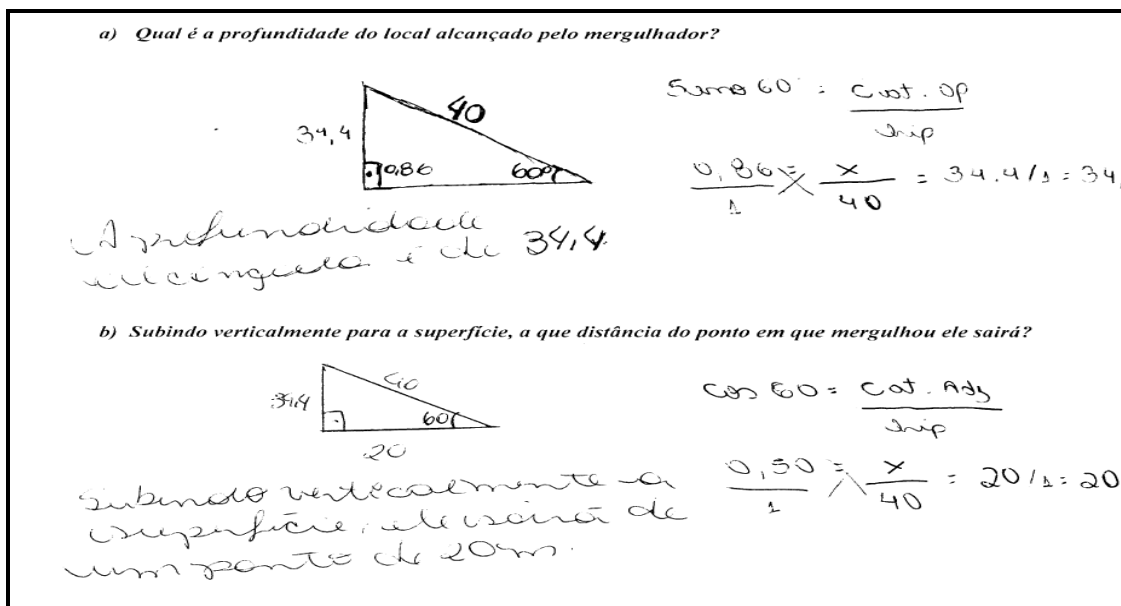 a) Qual é a profundidade do local alcançado pelo mergulhador?
40
34,4
0,86
60º
Seno 60 = Cat. OP
hip
0,86 = x = 34.4/1 = 34,
1 40
A profundidade
alcançada é de 34,4
b) Subindo verticalmente para a superfície, a que distância do ponto em que mergulhou ele sairá?
40
34,4
60
20
cos 60 = Cat. Adj
hip
0,50 = x = 20/1 = 20
1 40
Subindo verticalmente a
superfície, ele sairá de
um ponto de 20m.